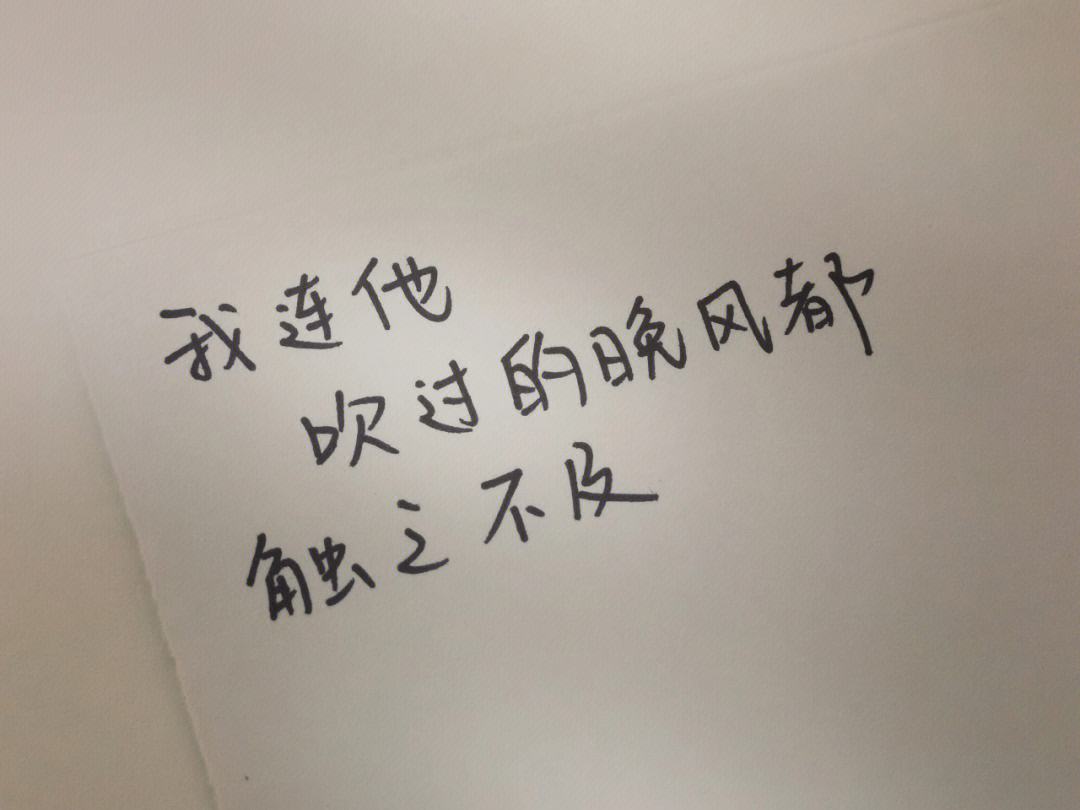 我连他
吹过的晚风都
触之不及